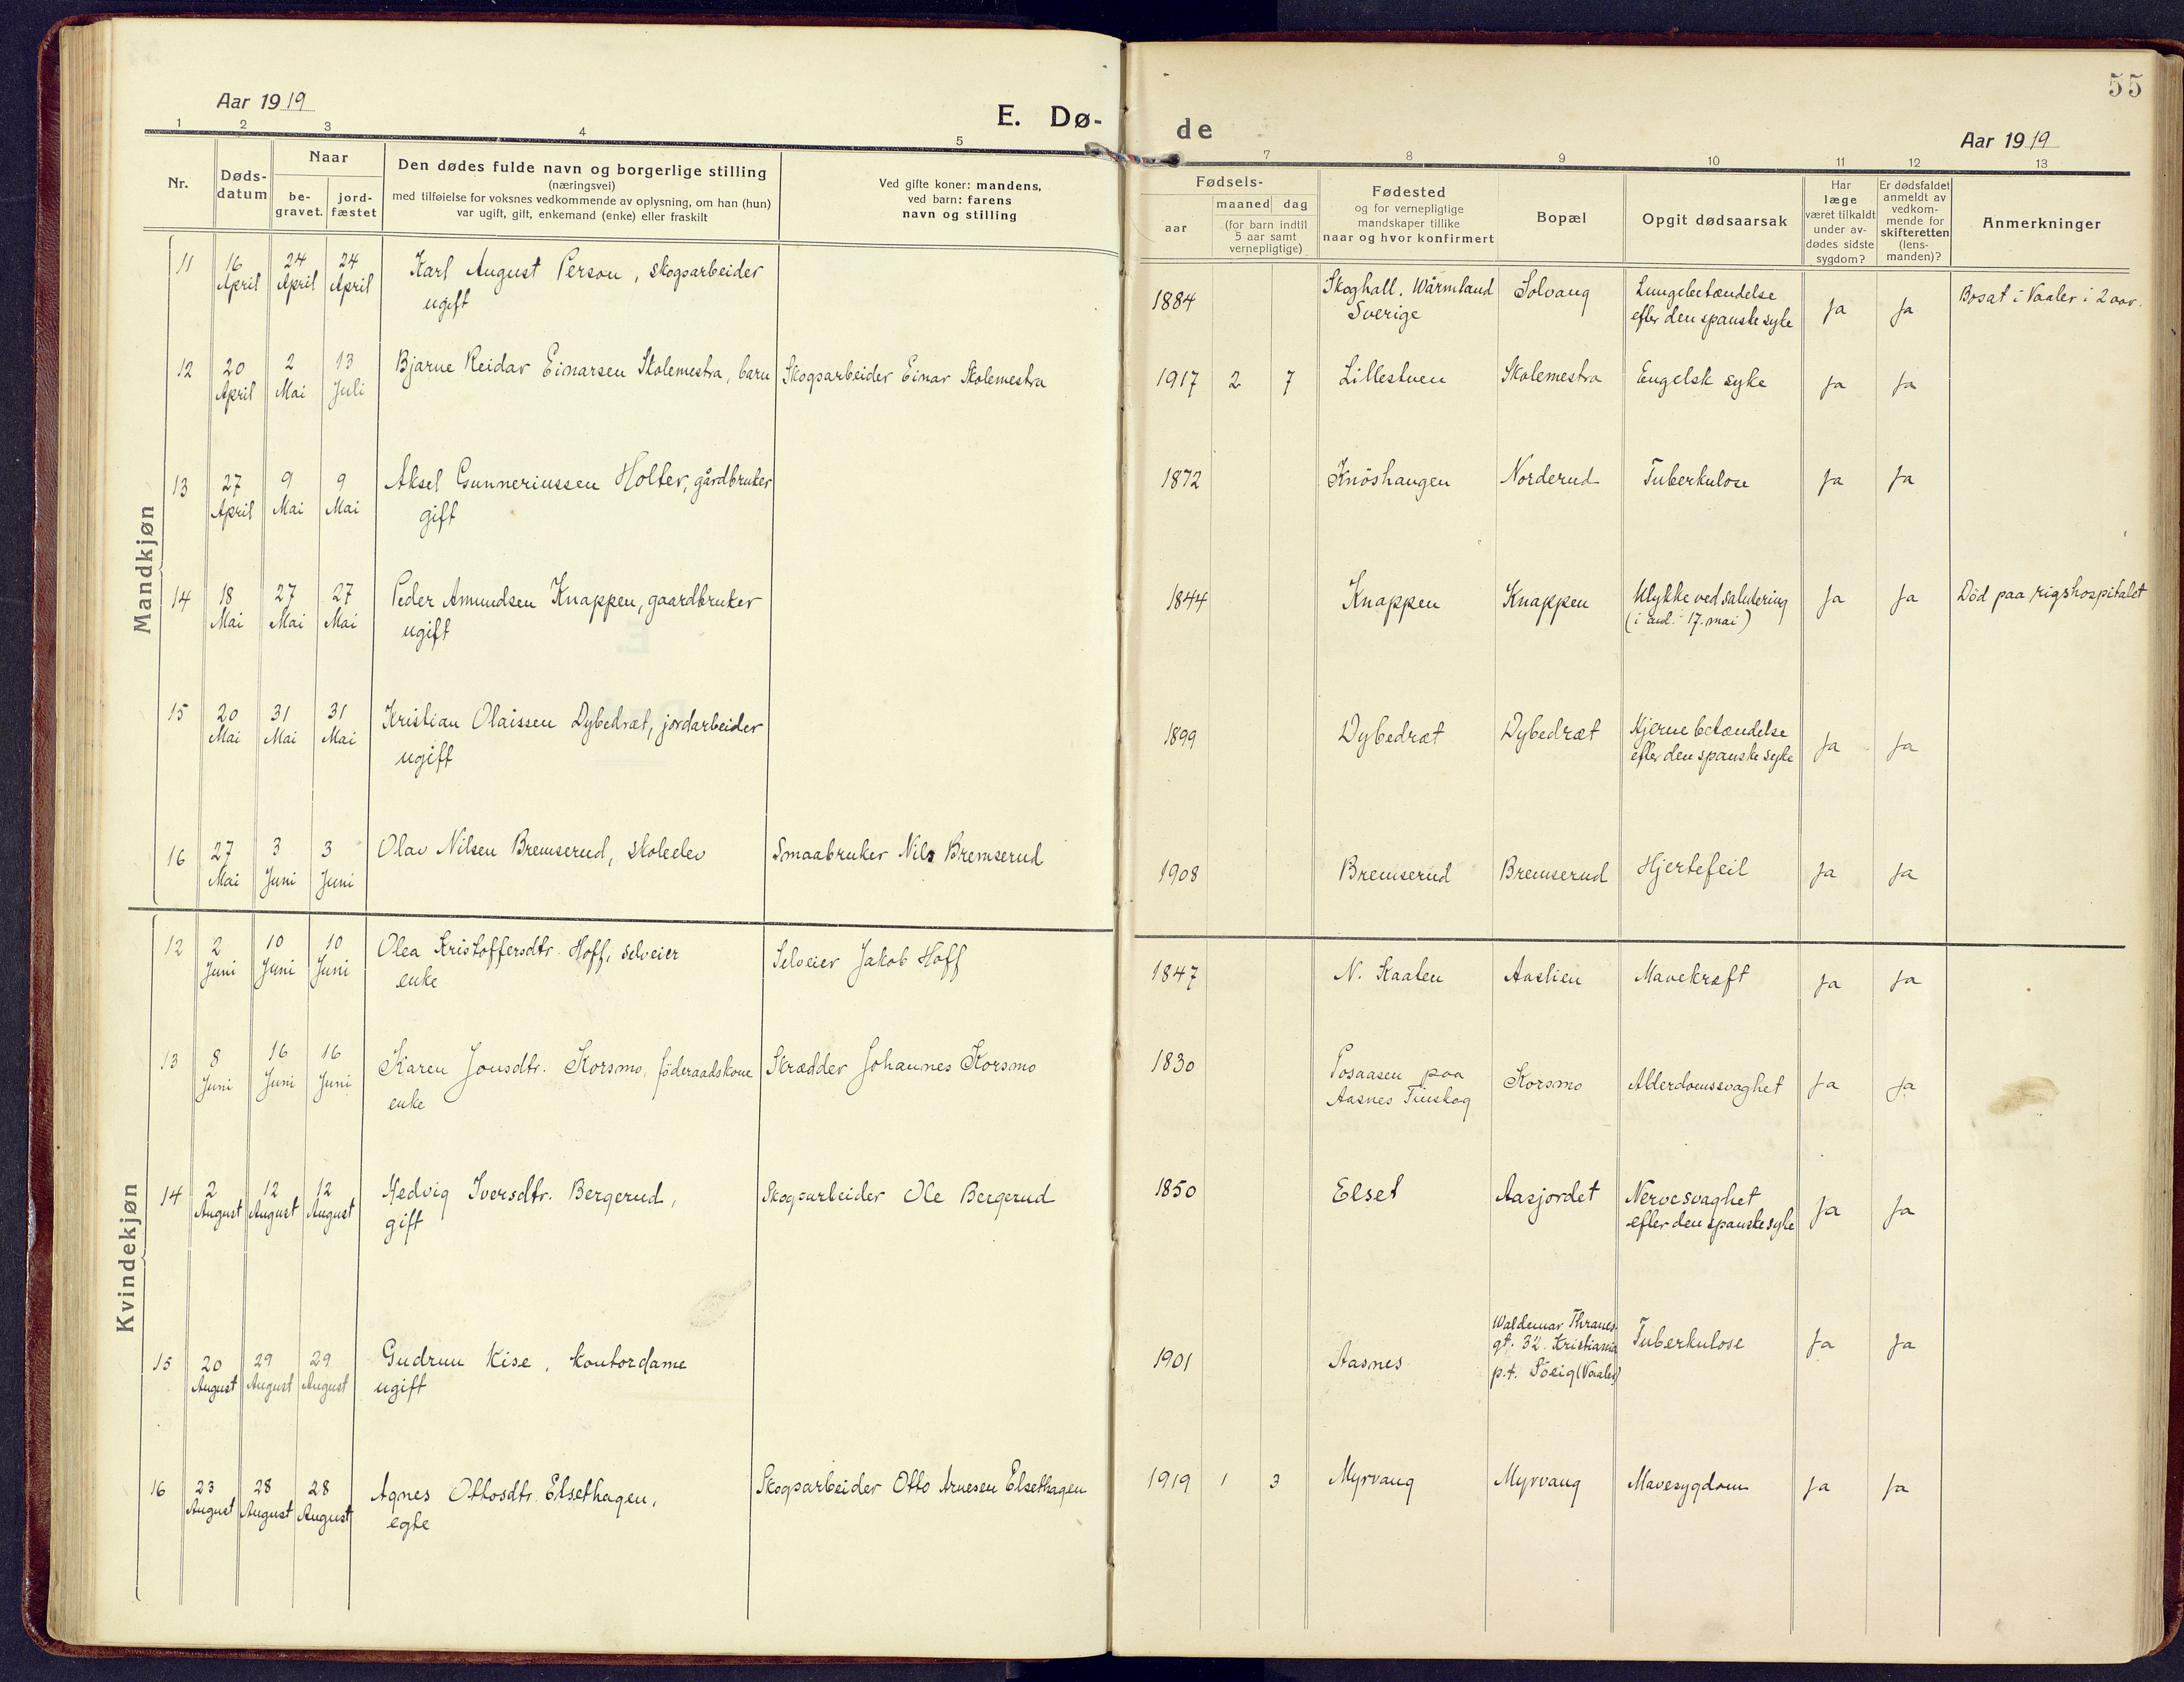 Aar 1919
E. Dø-
1 2 3 4 5
Nr.
Døds-
datum
Naar
be-
gravet.
jord-
fæstet
Den dødes fulde navn og borgerlige stilling
(næringsvei)
med tilføielse for voksnes vedkommende av oplysning, om han (hun)
var ugift, gift, enkemand (enke) eller fraskilt
Ved gifte koner: mandens,
ved barn: farens
navn og stilling
Mandkjøn
11 16 24 24 Karl August Person, skogsarbeider
April April April ugift
12 20 2 13 Bjarne Reidar Einarsen Skolemestra, barn Skogsarbeider Einar Skolemestra
April Mai Juli
13 27 9 9 Aksel Gunneriussen Holter, gårdbruker
April Mai Mai gift
14 18 27 27 Peder Amundsen Knappen, gaardbruker
Mai Mai Mai ugift
15 20 31 31 Kristian Olaissen Dybedræt, jordarbeider
Mai Mai Mai ugift
16 27 3 3 Olav Nilsen Bremserud, skoleelev Smaabruker Nils Bremserud
Mai Juni Juni
Kvindekjøn
12 2 10 10 Olea Kristoffersdtr. Hoff, selveier Selveier Jakob Hoff
Juni Juni Juni enke
13 8 16 16 Karen Jonsdtr. Korsmo, föderaadskone Skrædder Johannes Korsmo
Juni Juni Juni enke
14 2 12 12 Hedvig Iversdtr. Bergerud, Skogsarbeider Ole Bergerud
August August August gift
15 20 29 29 Gudrun Kise, kontordame
August August August ugift
16 23 28 28 Agnes Ottosdtr. Elsethagen, Skogsarbeider Otto Arnesen Elsethagen
August August August egte
55
de
Aar 1919
7 8 9 10 11 12 13
Fødsels-
aar
maaned dag
(for barn indtil
5 aar samt
vernepligtige)
Fødested
og for vernepligtige
mandskaper tillike
naar og hvor konfirmert
Bopæl
Opgit dødsaarsak
Har
læge
været tilkaldt
under av-
dødes sidste
sygdom?
Er dødsfaldet
anmeldt av
vedkom-
mende for
skifteretten
(lens-
manden)?
Anmerkninger
1884 Skoghall. Wärmland Solvang Lungebetændelse Ja Ja Bosat i Vaaler i 2 aar.
Sverige efter den spanske syke
1917 2 7 Lillestuen Skolemestra Engelsk syke Ja Ja
1872 Knöshaugen Norderud Tuberkulose Ja Ja
1844 Knappen Knappen Ulykke ved salutering Ja Ja Död paa rigshospitalet
17. mai)
1899 Dybedræt Dybedræt Hjernebetændelse Ja Ja
efter den spanske syke
1908 Bremserud Bremserud Hjertefeil Ja Ja
1847 N. Kaaten Aaslien Mavekræft Ja Ja
1830 Posaasen paa Korsmo Alderdomssvaghet Ja Ja
Aasnes Finskog
1850 Elset Aasjordet Nervesvaghet Ja Ja
efter den spanske syke
1901 Aasnes Waldemar Thranes- Tuberkulose Ja Ja
gt. 32. Kristiania
p.t. (Vaaler)
1919 1 3 Myrvang Myrvang Mavesygdom Ja Ja